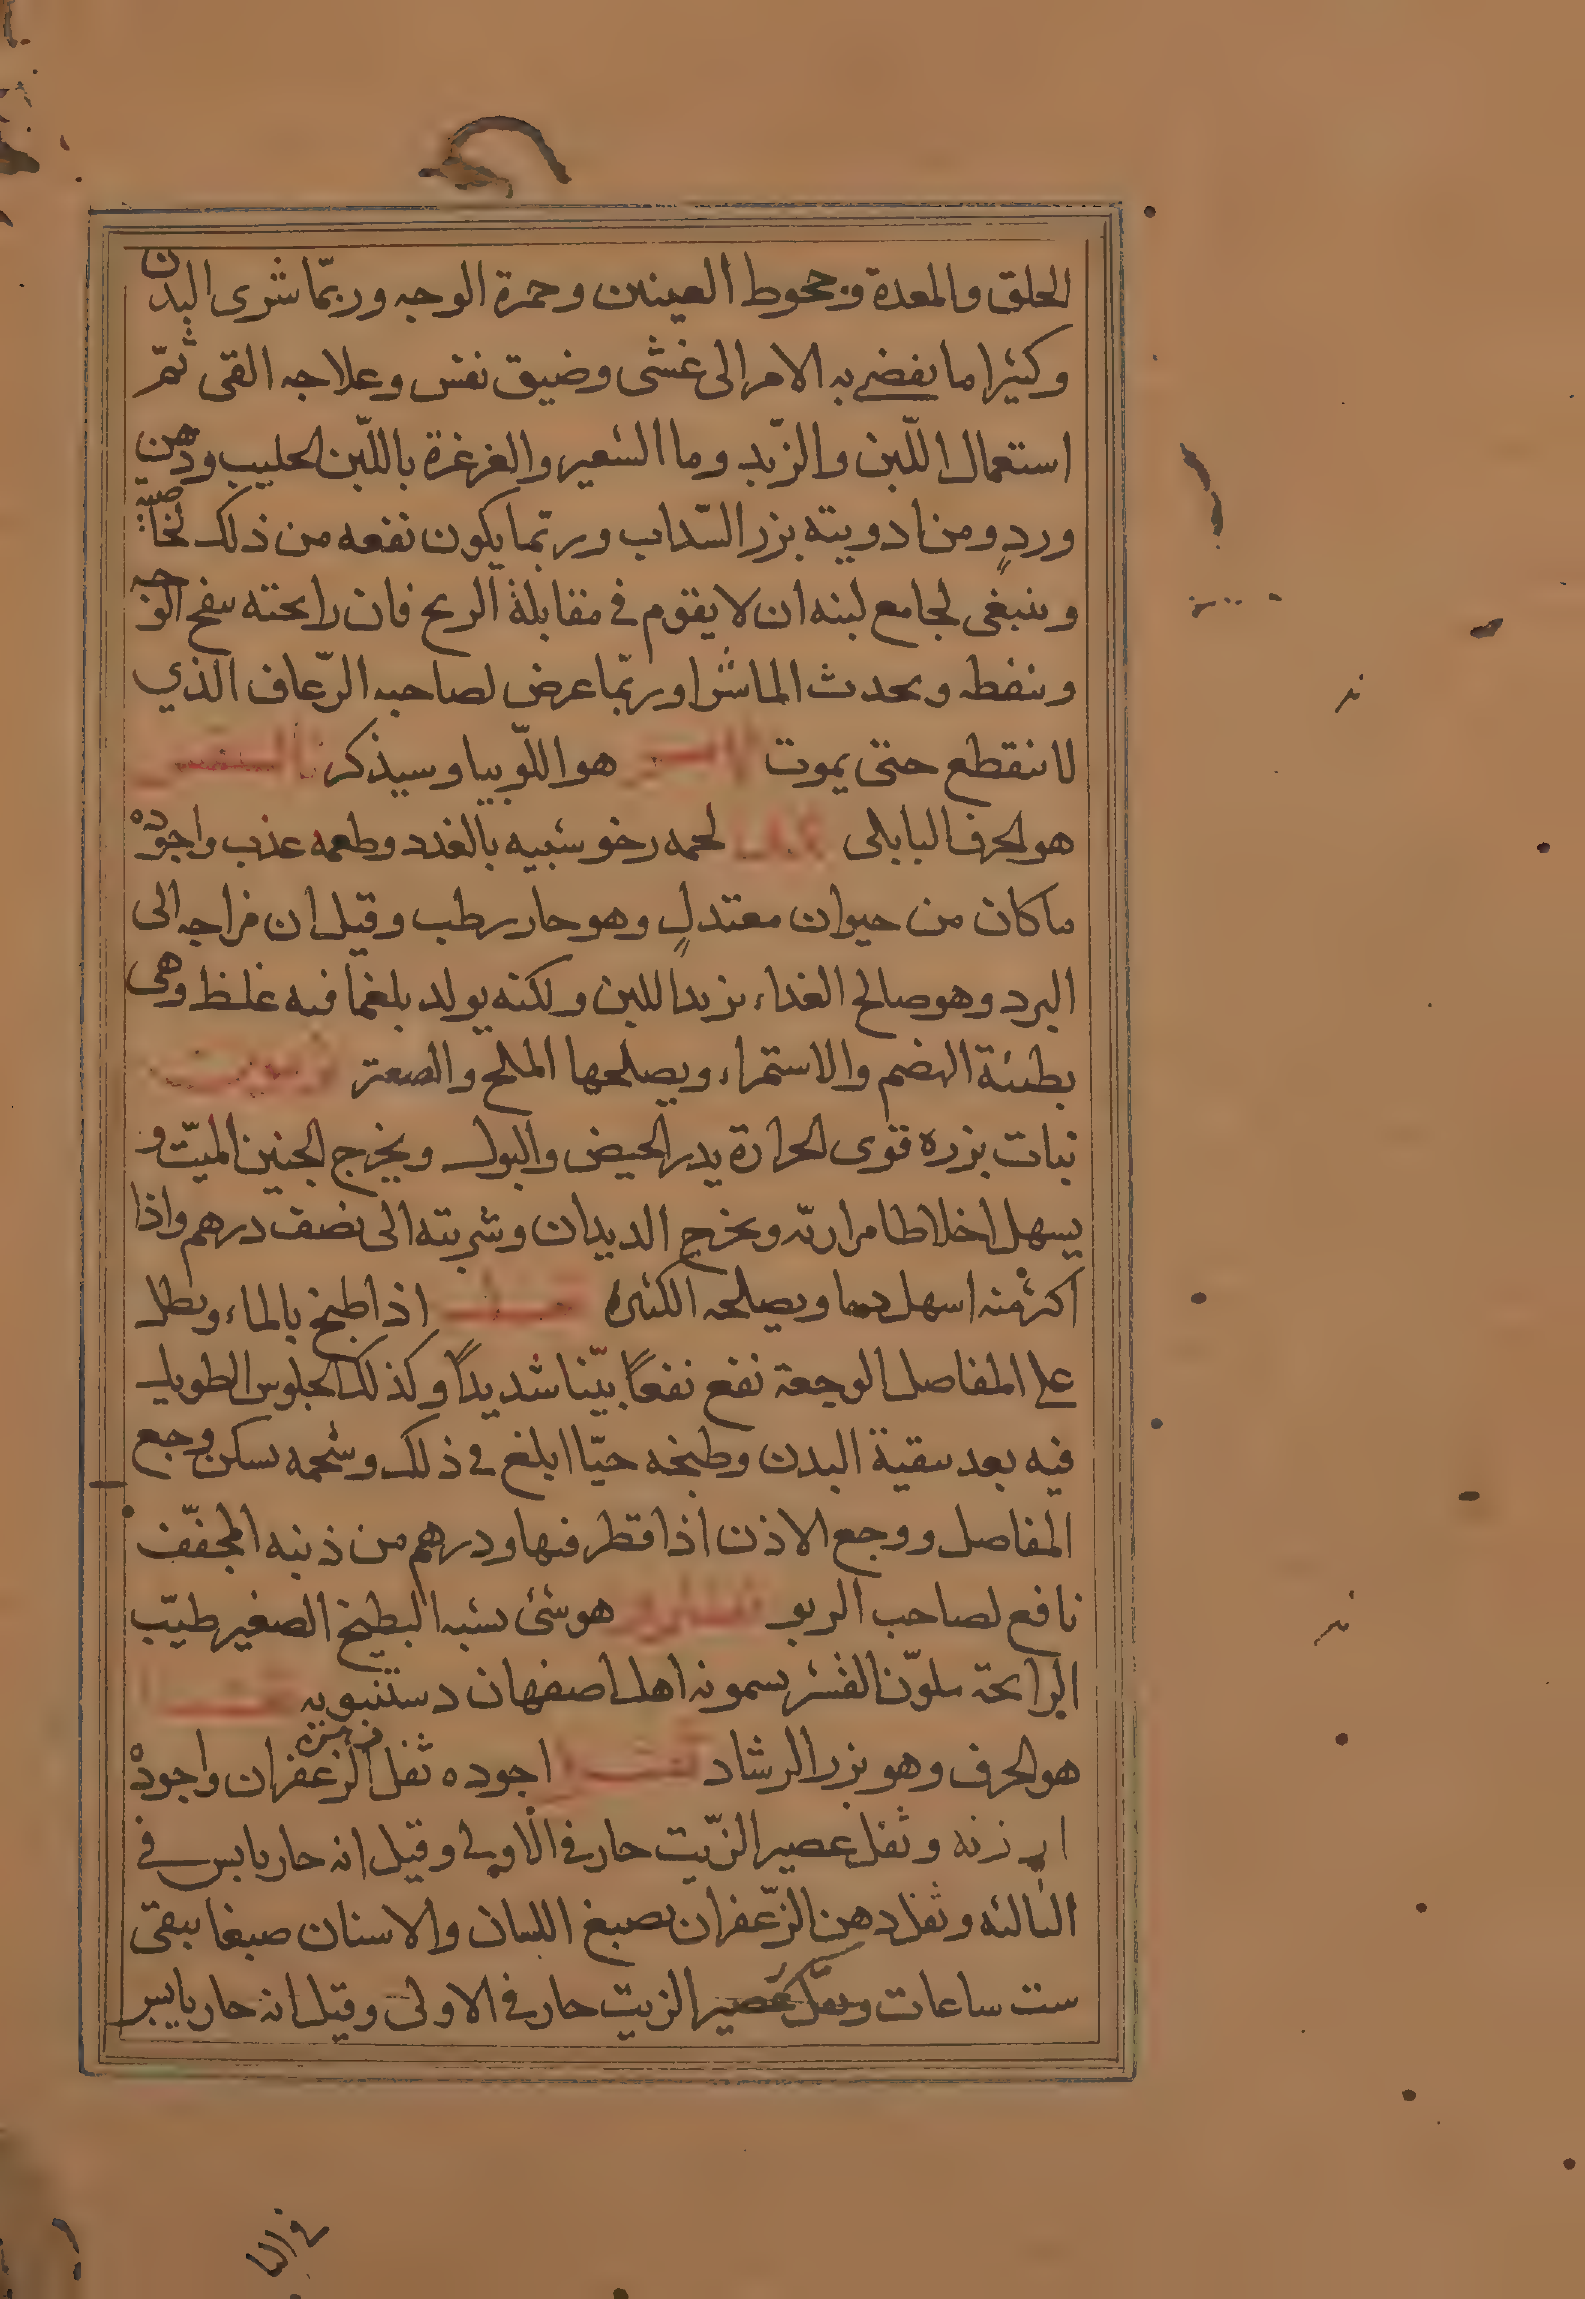 الحلق والمعدة وجحوط العينين وحمرة الوجه وربّما شرى البدن
وكثيرا ما يفضى به الامر الى غشى وضيق نفس وعلاجه القى ثمّ
استعمال اللّبن والزّبد وما الشعير والغرغرة باللّبن الحليب ودهن
وردٍ ومن ادويته بزر السّداب وربّما يكون نفعه من ذلك لخاصية
وينبغى لجامع لبنه ان لا يقوم فى مقابلة الريح فان رايحته ينفخ الوجه
وينفطه ويحدث الماشرا وربّما عرض لصاحبه الرّعاف الذي
لا ينقطع حتى يموت هو اللّوبيا وسيذكر
هو الحرف البابلى لحمه رخو شبيه بالغدد وطعمه عذب واجوده
ما كان من حيوان معتدلٍ وهو حار رطب وقيل ان مزاجه الى
البرد وهو صالح الغداء يزيد اللبن ولكنه يولد بلغما فيه غلظ وهى
بطيئة الهضم والاستمراء ويصلحها الملح والصعتر
نبات بزره قوى الحرارة يدر الحيض والبول ويخرج الجنين الميّت و
يسهل اخلاطا مرارية ويخرج الديدان وشربته الى نصف درهم واذا
اكثر منه اسهل دما ويصلحه الكثيرا اذا طبخ بالماء ويطلا
على المفاصل الوجعة نفع نفعاً بيّنا شديداً وكذلك الجلوس الطويل
فيه بعد تنقية البدن وطبخه حيّا ابلغ فى ذلك وشحمه يسكن وجع
المفاصل ووجع الاذن اذا قطر فيها ودرهم من ذنبه المجفّف
نافع لصاحب الربو هو شئ يشبه البطيخ الصغير طيّب
الرايحة ملوّن القشر يسمونه اهل اصفهان دستنبويه
هو الحرف وهو بزر الرشاد اجوده ثفل الزعفران واجوده
ارزنه وثفل عصير الزّيت حار فى الاولى وقيل انه حار يابس فى
الثالثه وثفل دهن الزّعفران يصبغ اللسان والاسنان صبغا يبقى
ست ساعات وثفل عصير الزيت حار فى الاولى وقيل انه حار يابس